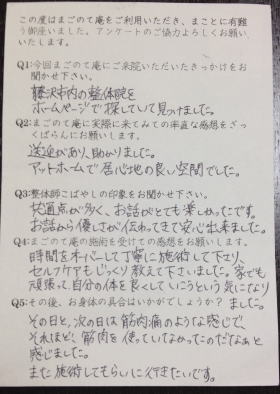 この度はまごのて庵をご利用いただき、まことに有難
う御座いました。アンケートのご協力よろしくお願い
いたします。
Q1:今回まごのて庵にご来院いただいたきっかけをお
聞かせ下さい。
藤沢市内の整体院を
ホームページで探していて見つけました。
Q2:まごのて庵に実際に来てみての率直な感想をざっ
くばらんにお願いします。
送迎があり、助かりました。
アットホームで居心地の良い空間でした。
Q3:整体師こばやしの印象をお聞かせ下さい。
共通点が多く、お話がとても楽しかったです。
お話から優しさが伝わってきて安心出来ました。
Q4:まごのて庵の施術を受けての感想をお願いします。
時間をオーバーして丁寧に施術して下さり、
セルフケアもじっくり教えて下さいました。家でも
頑張って、自分の体を良くしていこうという気になり
ました。
Q5:その後、お身体の具合はいかがでしょうか?
その日と、次の日は筋肉痛のような感じで、
それほど、筋肉を使っていなかったのだなぁと
感じました。
また施術してもらいに行きたいです。